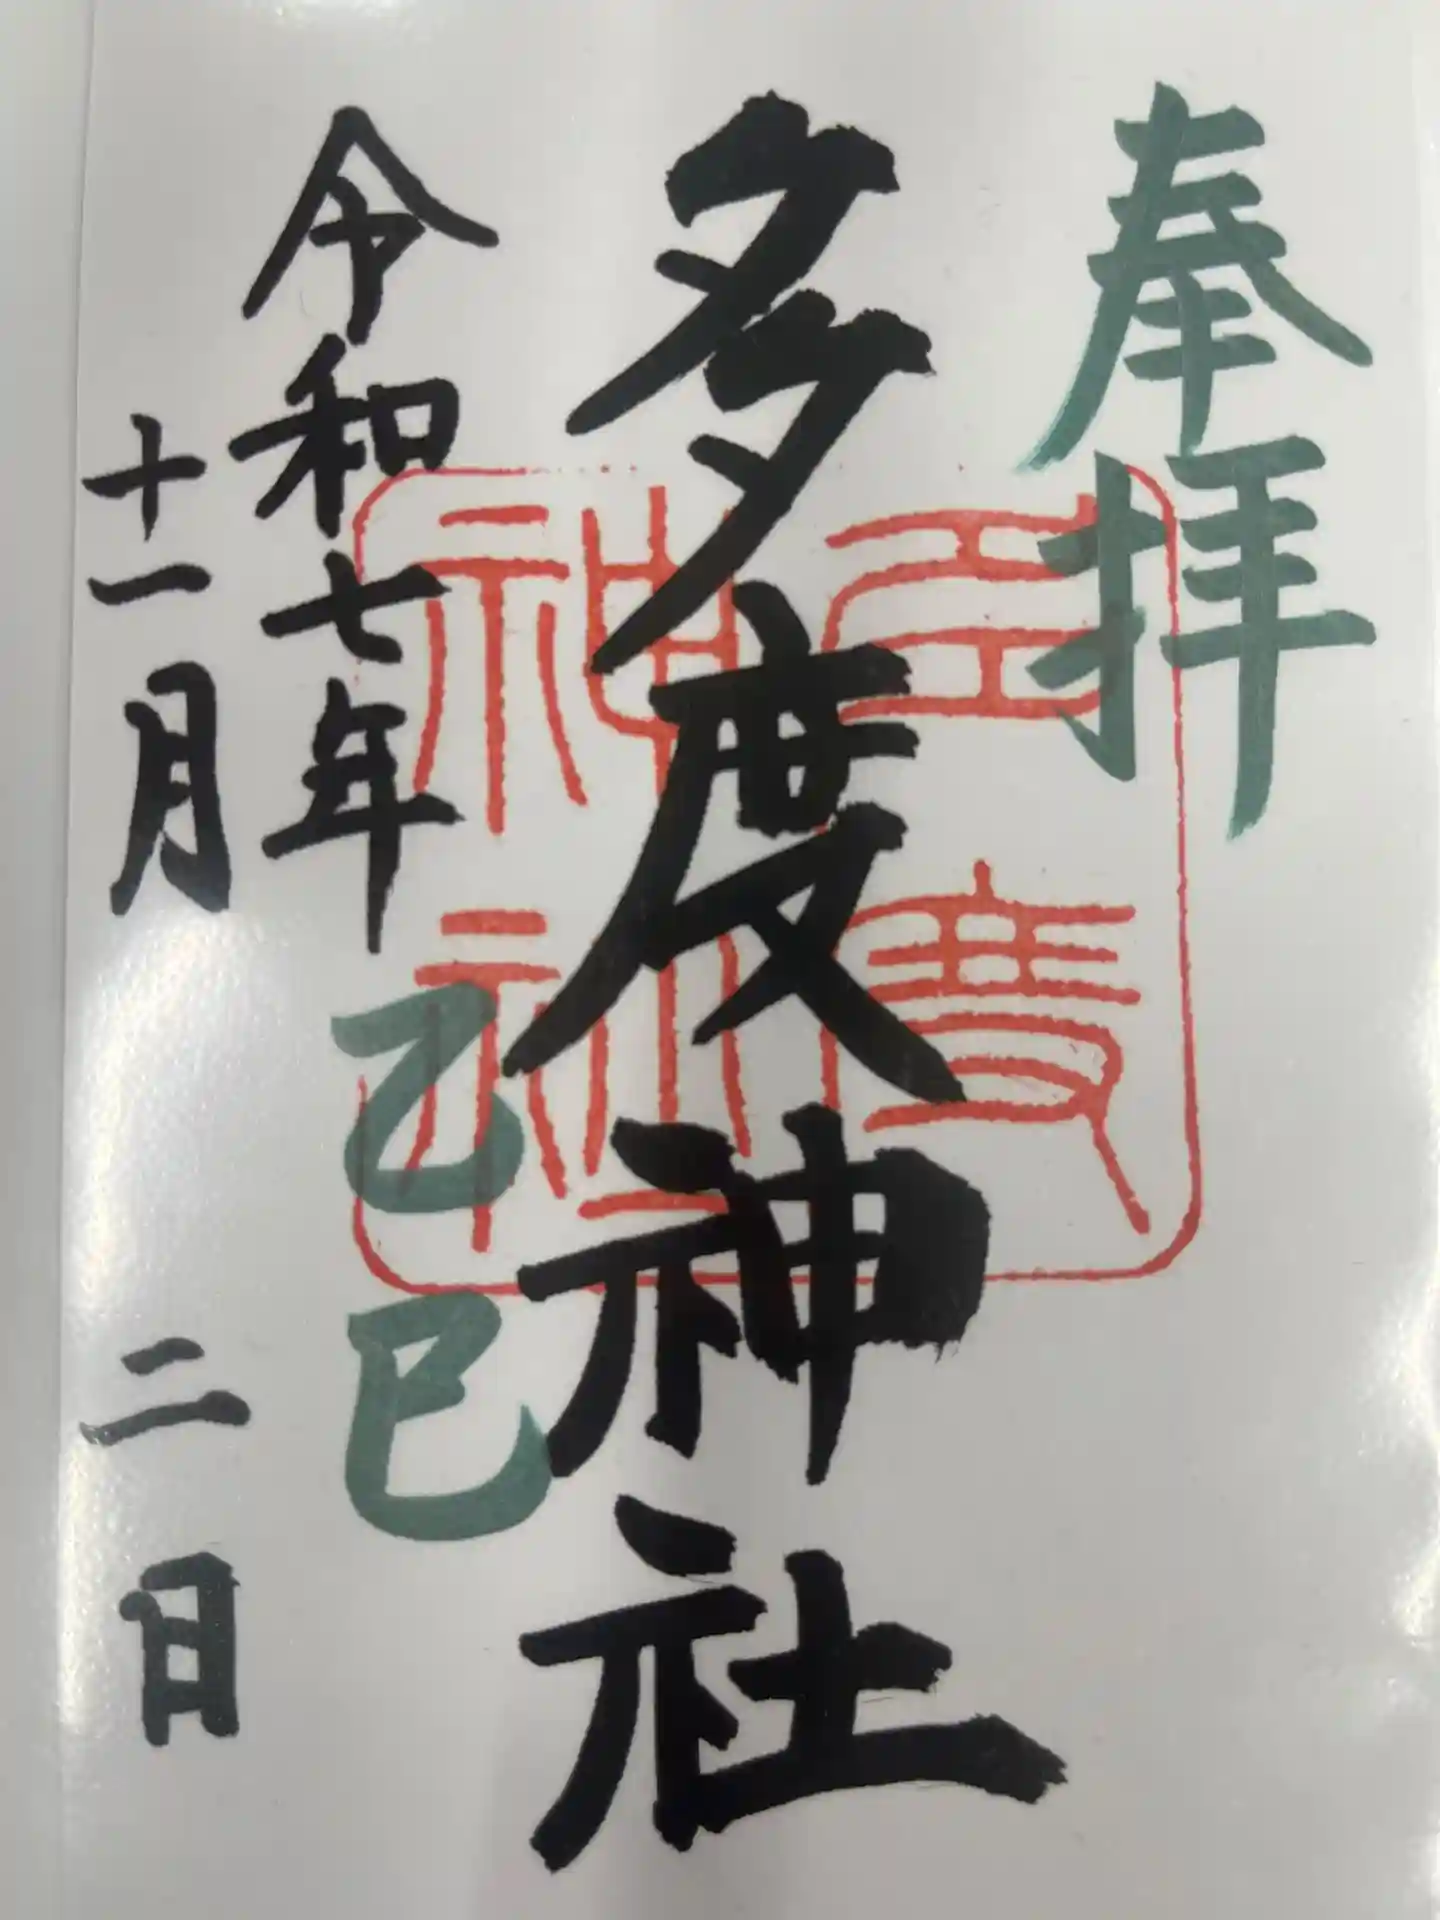 奉拝
多度神社
多度神社
令和七年
乙巳
十一月二日